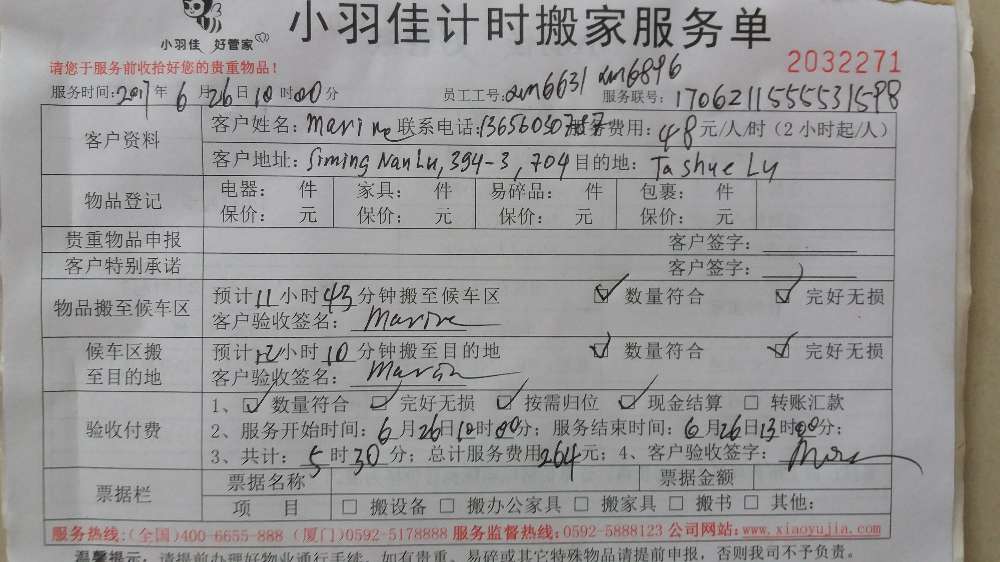 小羽佳 好管家
小羽佳计时搬家服务单
请您于服务前收拾好您的贵重物品!
2032271
服务时间:2017年6月26日10时00分 员工工号: 服务联号:
客户资料
客户姓名:Marine 联系电话: 服务费用:48元/人/时(2小时起/人)
客户地址:Siming Nan Lu, 394-3, 704 目的地:Ta Shue Lu
物品登记
电器: 件 家具: 件 易碎品: 件 包裹: 件
保价: 元 保价: 元 保价: 元 保价: 元
贵重物品申报 客户签字:
客户特别承诺 客户签字:
物品搬至候车区
预计11小时43分钟搬至候车区 ☑ 数量符合 ☑ 完好无损
客户验收签名:Marine
候车区搬至目的地
预计12小时10分钟搬至目的地 ☑ 数量符合 ☑ 完好无损
客户验收签名:
验收付费
1、☑ 数量符合 ☑ 完好无损 ☑ 按需归位 ☑ 现金结算 □ 转账汇款
2、服务开始时间:6月26日10时00分;服务结束时间:6月26日13时00分;
3、共计:5时30分;总计服务费用264元;4、客户验收签字:
票据栏
票据名称 票据金额
项 目 □ 搬设备 □ 搬办公家具 □ 搬家具 □ 搬书 □ 其他:
服务热线:(全国)400-6655-888 (厦门)0592-5178888 服务监督热线:0592-5888123 公司网站:www.xiaoyujia.com
温馨提示:请提前办理好物业通行手续,如有贵重、易碎或其它特殊物品请提前申报,否则我司不予负责。